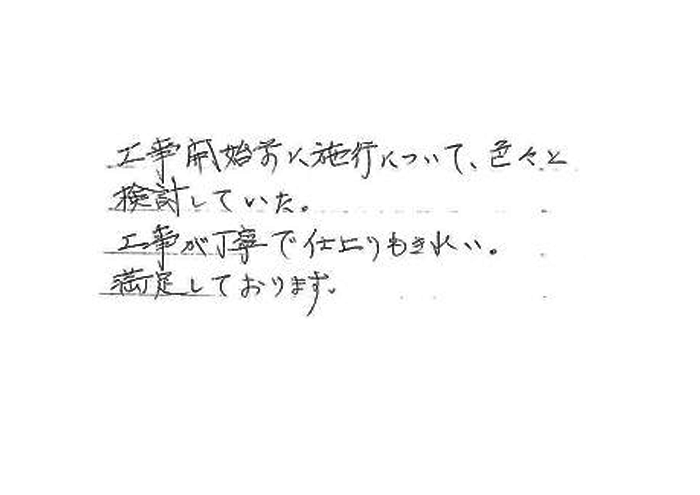 工事開始前に施行について、色々と
検討していた。
工事が丁寧で仕上りもきれい。
満足しております。